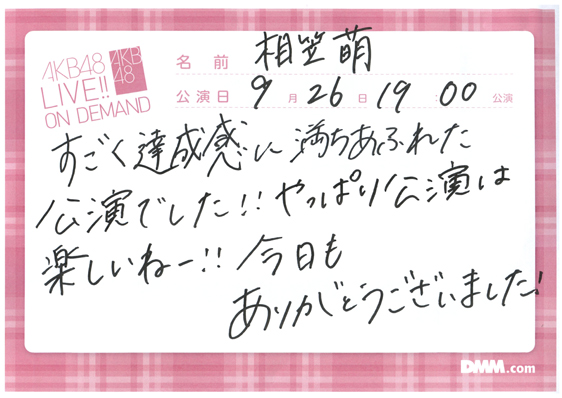 AKB48
LIVE!!
ON DEMAND
AKB
48
名前 相笠萌
公演日 9月26日 19 00 公演
すごく達成感に満ちあふれた
公演でした!! やっぱり公演は
楽しいねー!! 今日も
ありがとうございました!
DMM.com